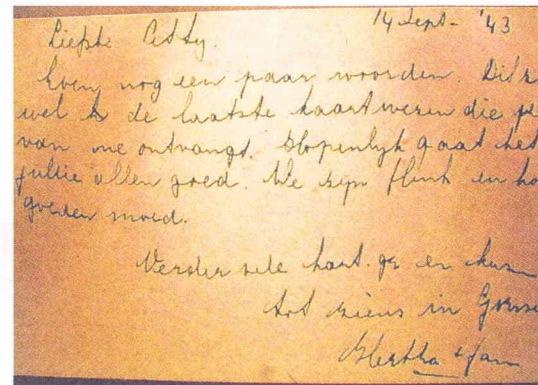 14 Sept - '43
Liefste Citty.
Even nog een paar woorden. Dit z
wel h de laatste kaart wezen die je
van me ontvangt. Hopenlijk gaat het
jullie allen goed. We zijn flink en ho
goeden moed.
Verder vele hart. gr en kusse
tot ziens in
Hertha + Jan